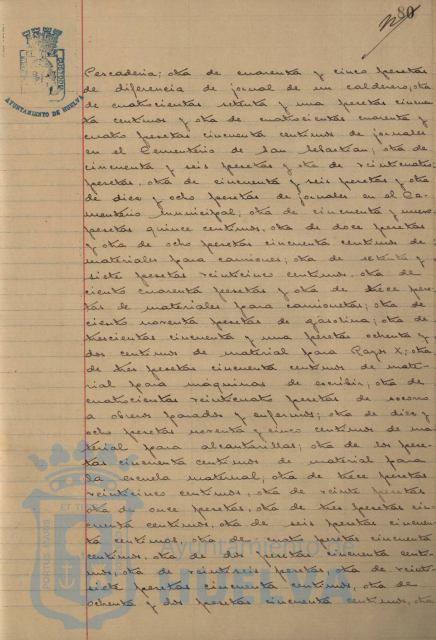 80
AYUNTAMIENTO DE HUELVA
Pescaderia; otra de cuarenta y cinco pesetas
de diferencia de jornal de un caldero, otra
de cuatrocientas setenta y una pesetas cincuen
ta centimos y otra de cuatrocientas cuarenta y
cuatro pesetas cincuenta centimos de jornales
en el Cementerio de San Sebastian; otra de
cincuenta y seis pesetas y otra de veinticuatro
pesetas, otra de cincuenta y seis pesetas y otra
de diez y ocho pesetas de jornales en el Ce-
menterio Municipal; otra de cincuenta y nueve
pesetas quince centimos, otra de doce pesetas
y otra de ocho pesetas cincuenta centimos de
materiales para camiones; otra de setenta y
siete pesetas veinticinco centimos, otra de
ciento cuarenta pesetas y otra de trece pese-
tas de materiales para camionetas; otra de
ciento noventa pesetas de gasolina; otra de
trescientas cincuenta y una pesetas ochenta y
dos centimos de material para Rayos X; otra
de tres pesetas cincuenta centimos de mate-
rial para máquinas de escribir; otra de
cuatrocientas veinticuatro pesetas de socorro
a obreros parados y enfermos; otra de diez y
ocho pesetas noventa y cinco centimos de ma-
terial para alcantarillas; otra de dos pese-
tas cincuenta centimos de material para
la escuela maternal; otra de trece pesetas
veinticinco centimos, otra de veinte pesetas
otra de once pesetas, otra de tres pesetas cin-
cuenta centimos, otra de seis pesetas cincuen-
ta centimos, otra de cuatro pesetas cincuenta
centimos, otra de dos pesetas cincuenta centi-
mos, otra de veintiseis pesetas, otra de veinti-
siete pesetas cincuenta centimos, otra de
ochenta y dos pesetas cincuenta centimos, otra
Ayuntamiento de
HUELVA